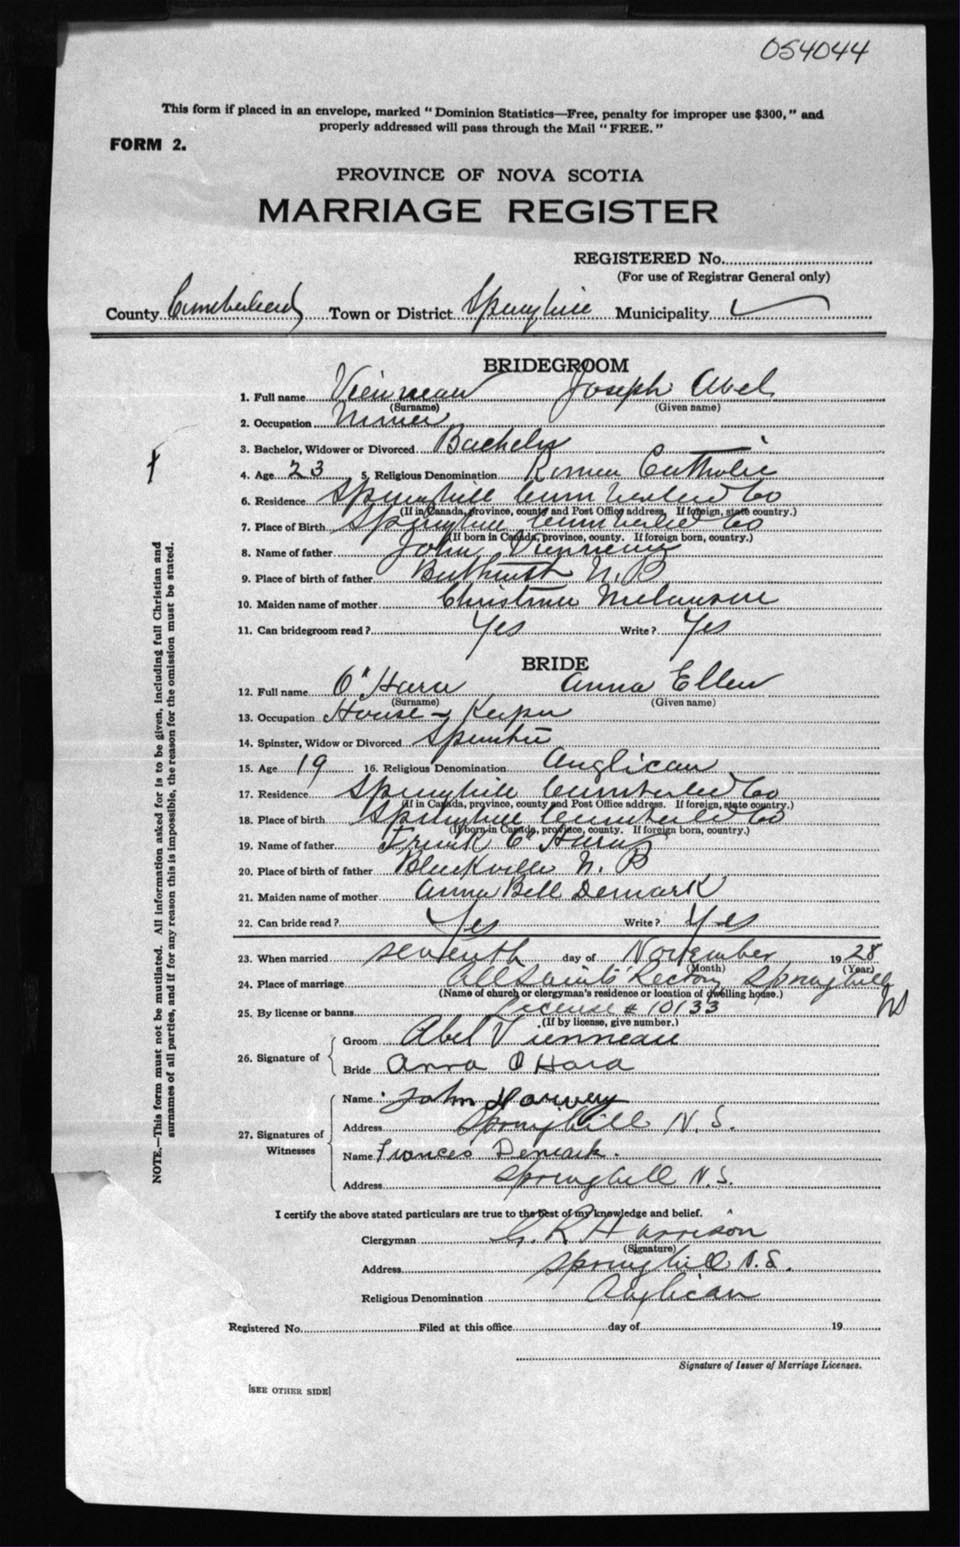 054044
This form if placed in an envelope, marked "Dominion Statistics—Free, penalty for improper use $300," and
properly addressed will pass through the Mail "FREE."
FORM 2.
PROVINCE OF NOVA SCOTIA
MARRIAGE REGISTER
REGISTERED No.
(For use of Registrar General only)
County Cumberland Town or District Springhill Municipality
BRIDEGROOM
1. Full name Vienneau Joseph Abel
(Surname) (Given name)
2. Occupation Miner
3. Bachelor, Widower or Divorced Bachelor
4. Age 23 5. Religious Denomination Roman Catholic
6. Residence Springhill Cumberland Co
(If in Canada, province, county and Post Office address. If foreign, state country.)
7. Place of Birth Springhill Cumberland Co
(If born in Canada, province, county. If foreign born, country.)
8. Name of father John Vienneau
9. Place of birth of father Bathurst N.B
10. Maiden name of mother Christine Melanson
11. Can bridegroom read? Yes Write? Yes
BRIDE
12. Full name O'Hara Anna Ellen
(Surname) (Given name)
13. Occupation House-Keeper
14. Spinster, Widow or Divorced Spinster
15. Age 19 16. Religious Denomination Anglican
17. Residence Springhill Cumberland Co
(If in Canada, province, county and Post Office address. If foreign, state country.)
18. Place of birth Springhill Cumberland Co
(If born in Canada, province, county. If foreign born, country.)
19. Name of father Frank O'Hara
20. Place of birth of father Blackville N. B
21. Maiden name of mother Anna Bell Demark
22. Can bride read? Yes Write? Yes
23. When married seventh day of November 1928
(Month) (Year)
24. Place of marriage All Saints' Rectory Springhill NS
(Name of church or clergyman's residence or location of dwelling house.)
25. By license or banns License # 10133
(If by license, give number.)
26. Signature of Groom Abel Vienneau
Bride Anna O Hara
27. Signatures of Witnesses Name John Harvey
Address Springhill N.S.
Name Frances Demark.
Address Springhill N.S.
I certify the above stated particulars are true to the best of my knowledge and belief.
Clergyman G. R Harrison
(Signature)
Address Springhill N.S.
Religious Denomination Anglican
Registered No. Filed at this office day of 19
Signature of Issuer of Marriage Licenses.
[SEE OTHER SIDE]
NOTE.—This form must not be mutilated. All information asked for is to be given, including full Christian and
surnames of all parties, and if for any reason this is impossible, the reason for the omission must be stated.